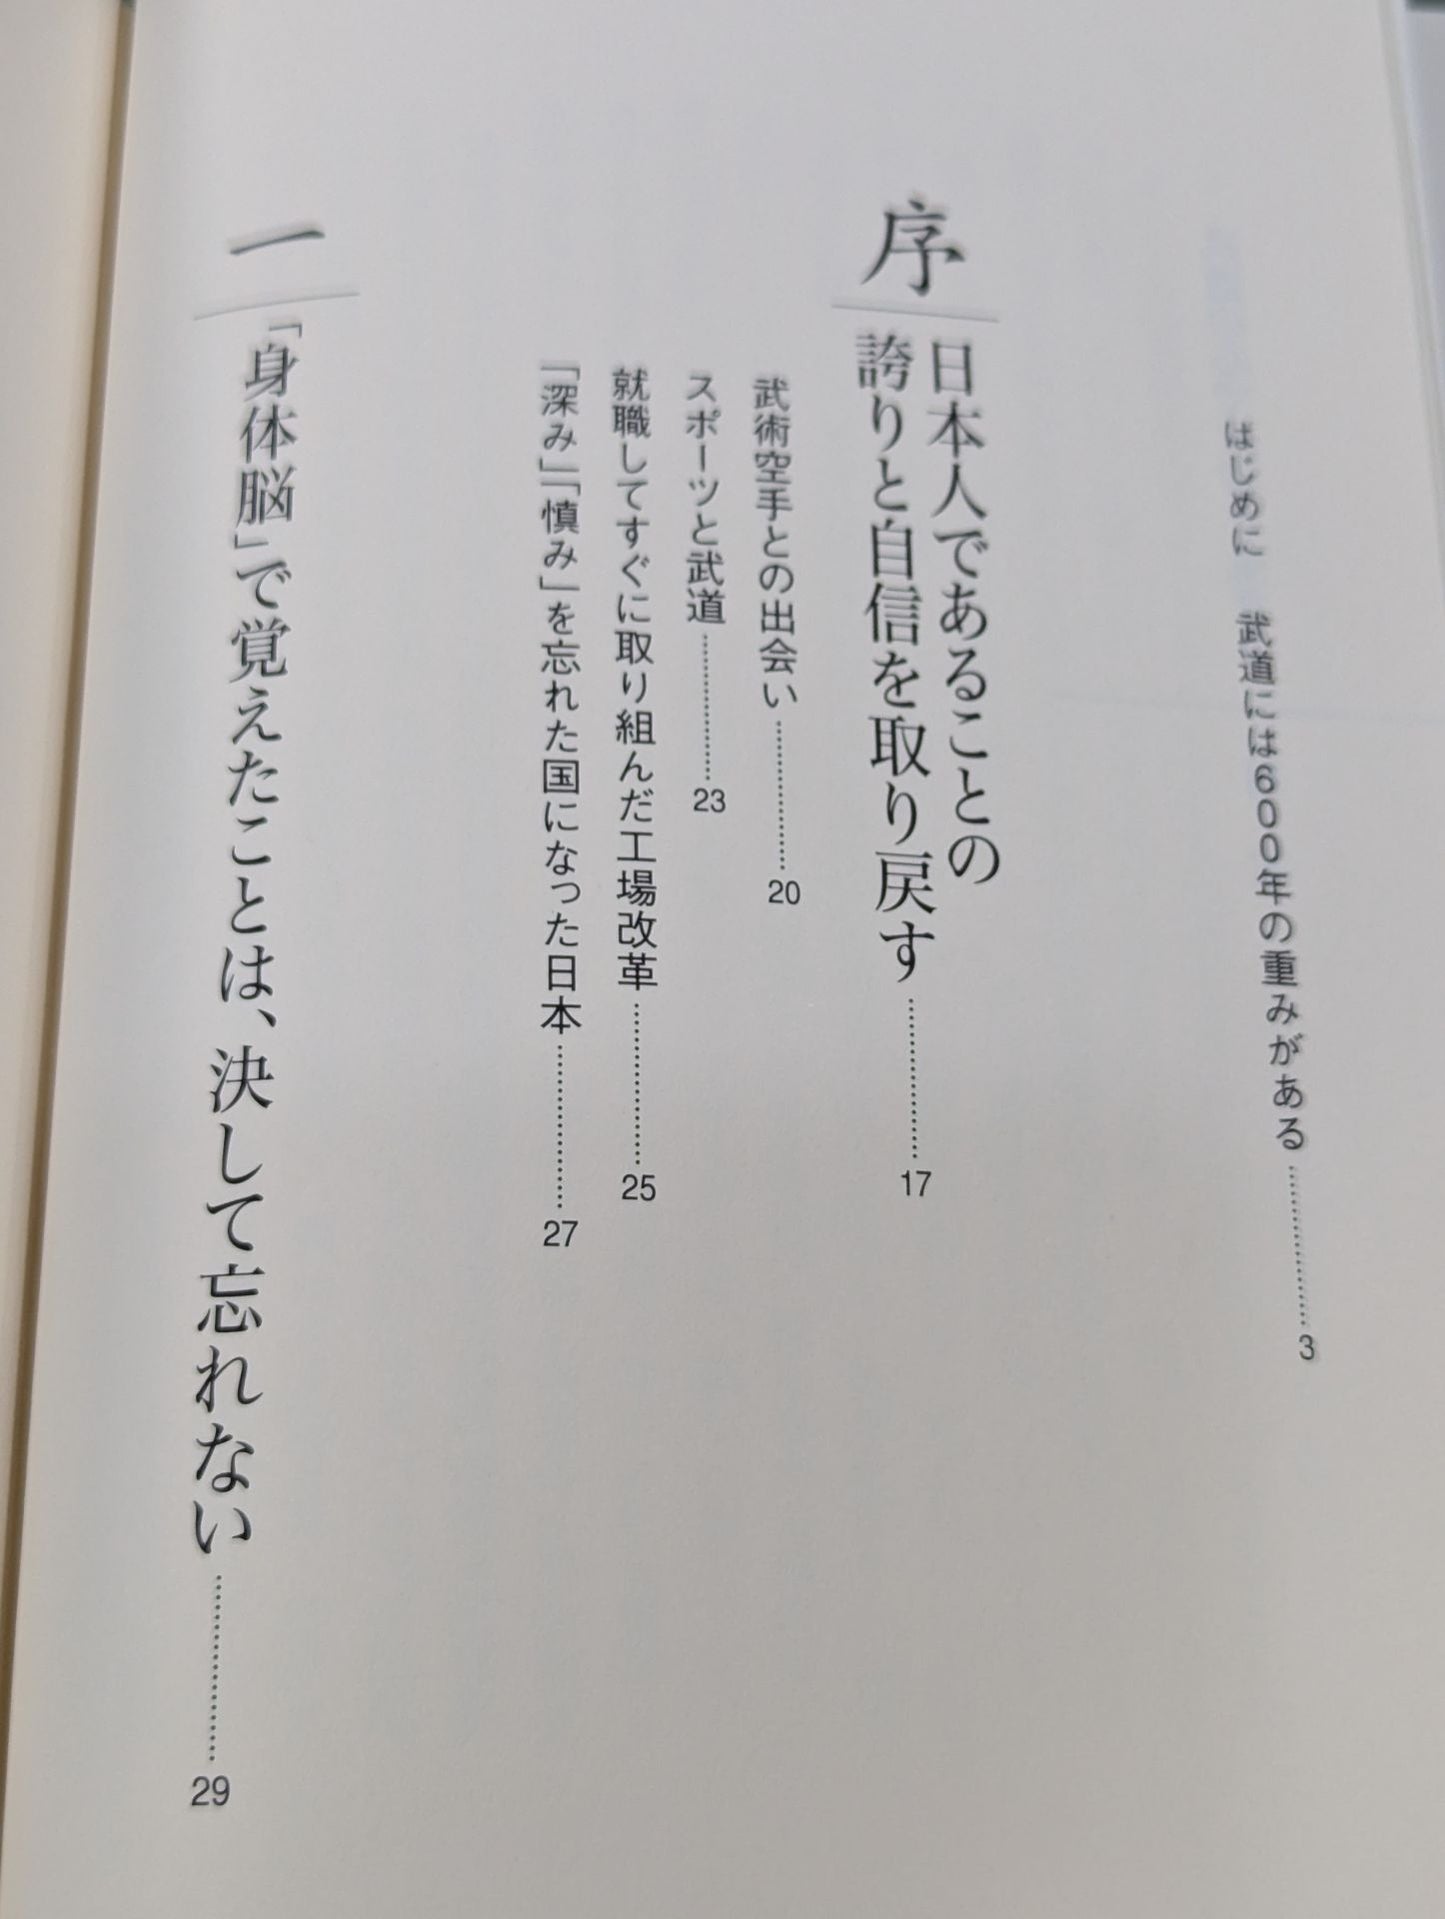 はじめに　武道には600年の重みがある…………3
序
日本人であることの
誇りと自信を取り戻す…………17
武術空手との出会い…………20
スポーツと武道…………23
就職してすぐに取り組んだ工場改革…………25
「深み」「慎み」を忘れた国になった日本…………27
一
「身体脳」で覚えたことは、決して忘れない…………29